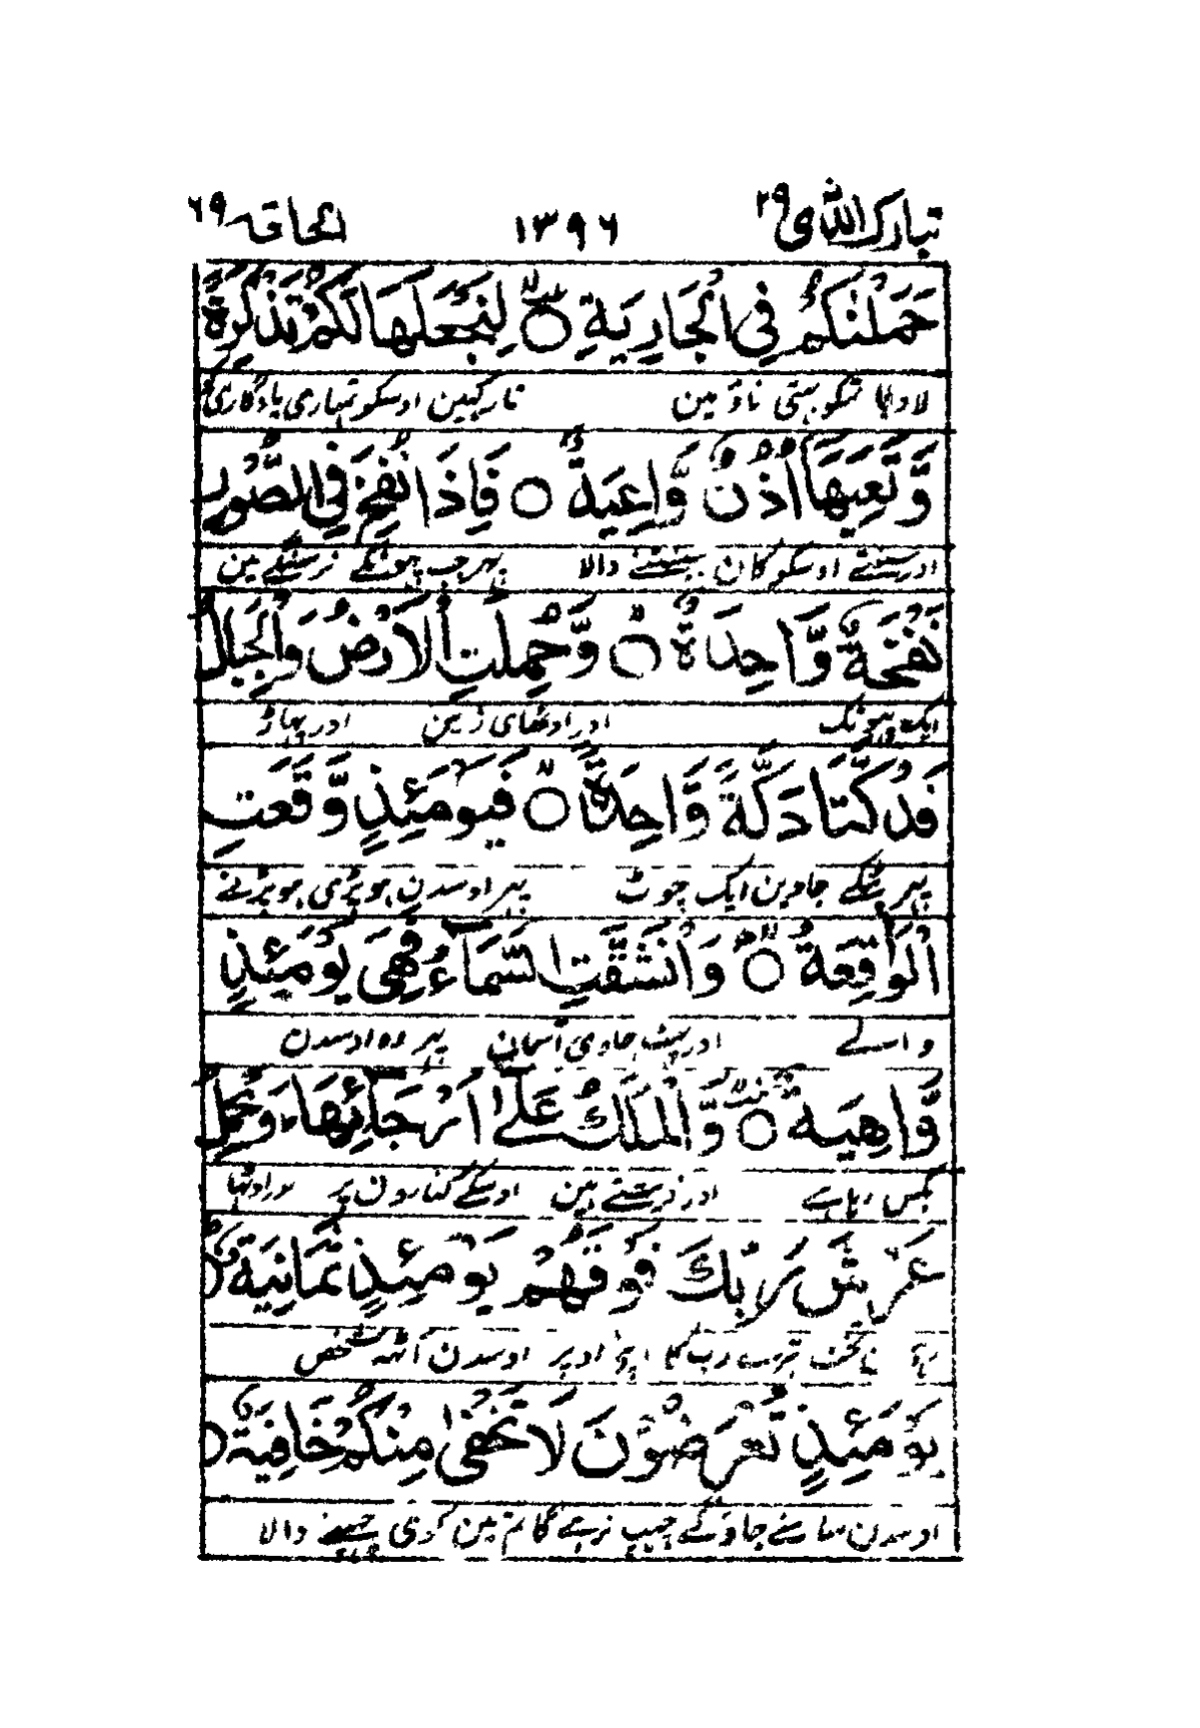 تبارک الذی ٢٩ ١٣٩٦ الحاقة ٦٩
حَمَلْنٰكُمْ فِی الْجَارِیَةِ ۝ لِنَجْعَلَهَا لَكُمْ تَذْكِرَةً
لادلیا تمکو بہتی ناؤ مین تا رکہین اوسکو تمہاری یادگاری کو
وَّتَعِیَهَاۤ اُذُنٌ وَّاعِیَةٌ ۝ فَاِذَا نُفِخَ فِی الصُّوْرِ
اور سینتے اوسکو کان سینتنے والا پہر جب پہونکے نرسنگے مین
نَفْخَةٌ وَّاحِدَةٌ ۝ وَّحُمِلَتِ الْاَرْضُ وَالْجِبَالُ
ایک پہونک اور اوٹھای زمین اور پہاڑ
فَدُكَّتَا دَكَّةً وَّاحِدَةً ۝ فَیَوْمَئِذٍ وَّقَعَتِ
پہر پٹکے جاوین ایک چوٹ پہر اوسدن ہو پڑی ہو پڑنے
الْوَاقِعَةُ ۝ وَانْشَقَّتِ السَّمَآءُ فَهِیَ یَوْمَئِذٍ
والے اور پہٹ جاوی آسمان پہر وہ اوسدن
وَّاهِیَةٌ ۝ وَّالْمَلَكُ عَلٰۤی اَرْجَآئِهَا ؕ وَیَحْمِلُ
بکس رہا ہے اور فرشتے ہین اوسکے کنارون پر اور اوٹھا
عَرْشَ رَبِّكَ فَوْقَهُمْ یَوْمَئِذٍ ثَمٰنِیَةٌ ۝
تخت تیرے رب کا اپنے اوپر اوسدن آٹھ شخص
یَوْمَئِذٍ تُعْرَضُوْنَ لَا تَخْفٰی مِنْكُمْ خَافِیَةٌ ۝
اوسدن سامنے جاؤگے چہپ نرہے گا تم مین کوئی چہپنے والا